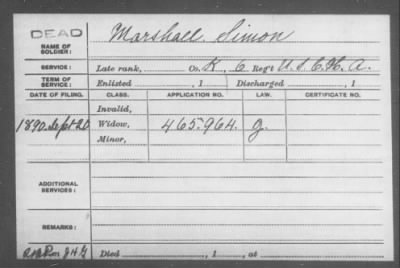 DEAD
NAME OF SOLDIER: Marshall Simon
SERVICE: Late rank, Co. K, 6 Reg't U. S. C. H. A.
TERM OF SERVICE: Enlisted , 1 Discharged , 1
DATE OF FILING. CLASS. APPLICATION NO. LAW. CERTIFICATE NO.
Invalid,
1890 Sept 20 Widow, 465.964. g.
Minor,
ADDITIONAL SERVICES:
REMARKS:
Died , 1 , at